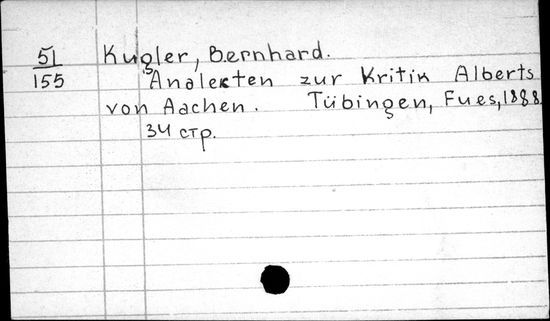 51
155
Kugler, Bernhard.
Analekten zur Kritik Alberts
von Aachen. Tübingen, Fues, 1888.
34 стр.